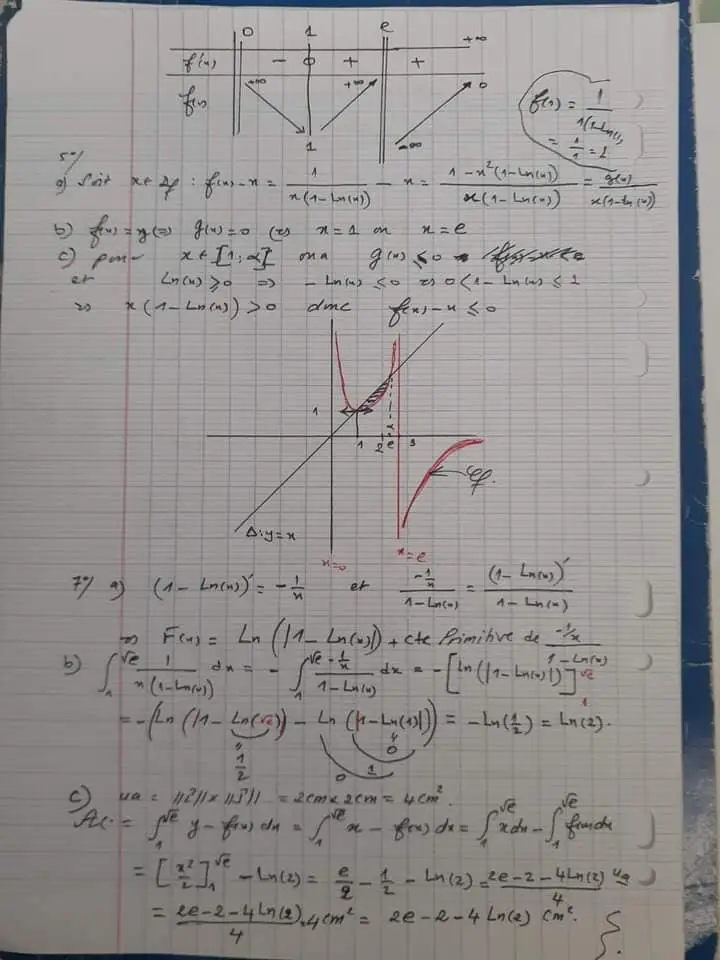 0 1 e +∞
f'(x) - 0 + +
f(x) +∞ 1 +∞ -∞ 0
f(1) = 1/1(1-Ln(1))
= 1/1 = 1
5°/
a) Soit x ∈ Df : f(x) - x = 1/x(1-Ln(x)) - x = 1-x²(1-Ln(x))/x(1-Ln(x)) = g(x)/x(1-Ln(x))
b) f(x) = x ⇔ g(x) = 0 ⇔ x = 1 ou x =
c) pour x ∈ [1, α] on a g(x) ≤ 0
et Ln(x) ≥ 0 ⇒ - Ln(x) ≤ 0 ⇒ 0 < 1 - Ln(x) ≤ 1
⇒ x(1 - Ln(x)) > 0 donc f(x) - x ≤ 0
1
1 2 e 3
Cf.
Δ: y = x
x=0 x = e
7°/ a) (1 - Ln(x))' = -1/x et -1/x / 1-Ln(x) = (1-Ln(x))' / 1-Ln(x)
⇒ F(x) = Ln(|1 - Ln(x)|) + cte Primitive de -1/x / 1-Ln(x)
b) ∫₁^√e 1/x(1-Ln(x)) dx = - ∫₁^√e -1/x / 1-Ln(x) dx = -[ln(|1-Ln(x)|)]₁^√e
= -(Ln(|1 - Ln(√e)|) - Ln(|1-Ln(1)|)) = -Ln(1/2) = Ln(2).
" 1/2 " 0
0 1
c) ua = ||i||x||j|| = 2cm x 2cm = 4cm².
A = ∫₁^√e y - f(x) dx = ∫₁^√e x - f(x) dx = ∫₁^√e x dx - ∫₁^√e f(x) dx
= [x²/2]₁^√e - Ln(2) = e/2 - 1/2 - Ln(2) = 2e-2-4Ln(2)/4 ua
= 2e-2-4Ln(2)/4 . 4cm² = 2e-2-4 Ln(2) cm².